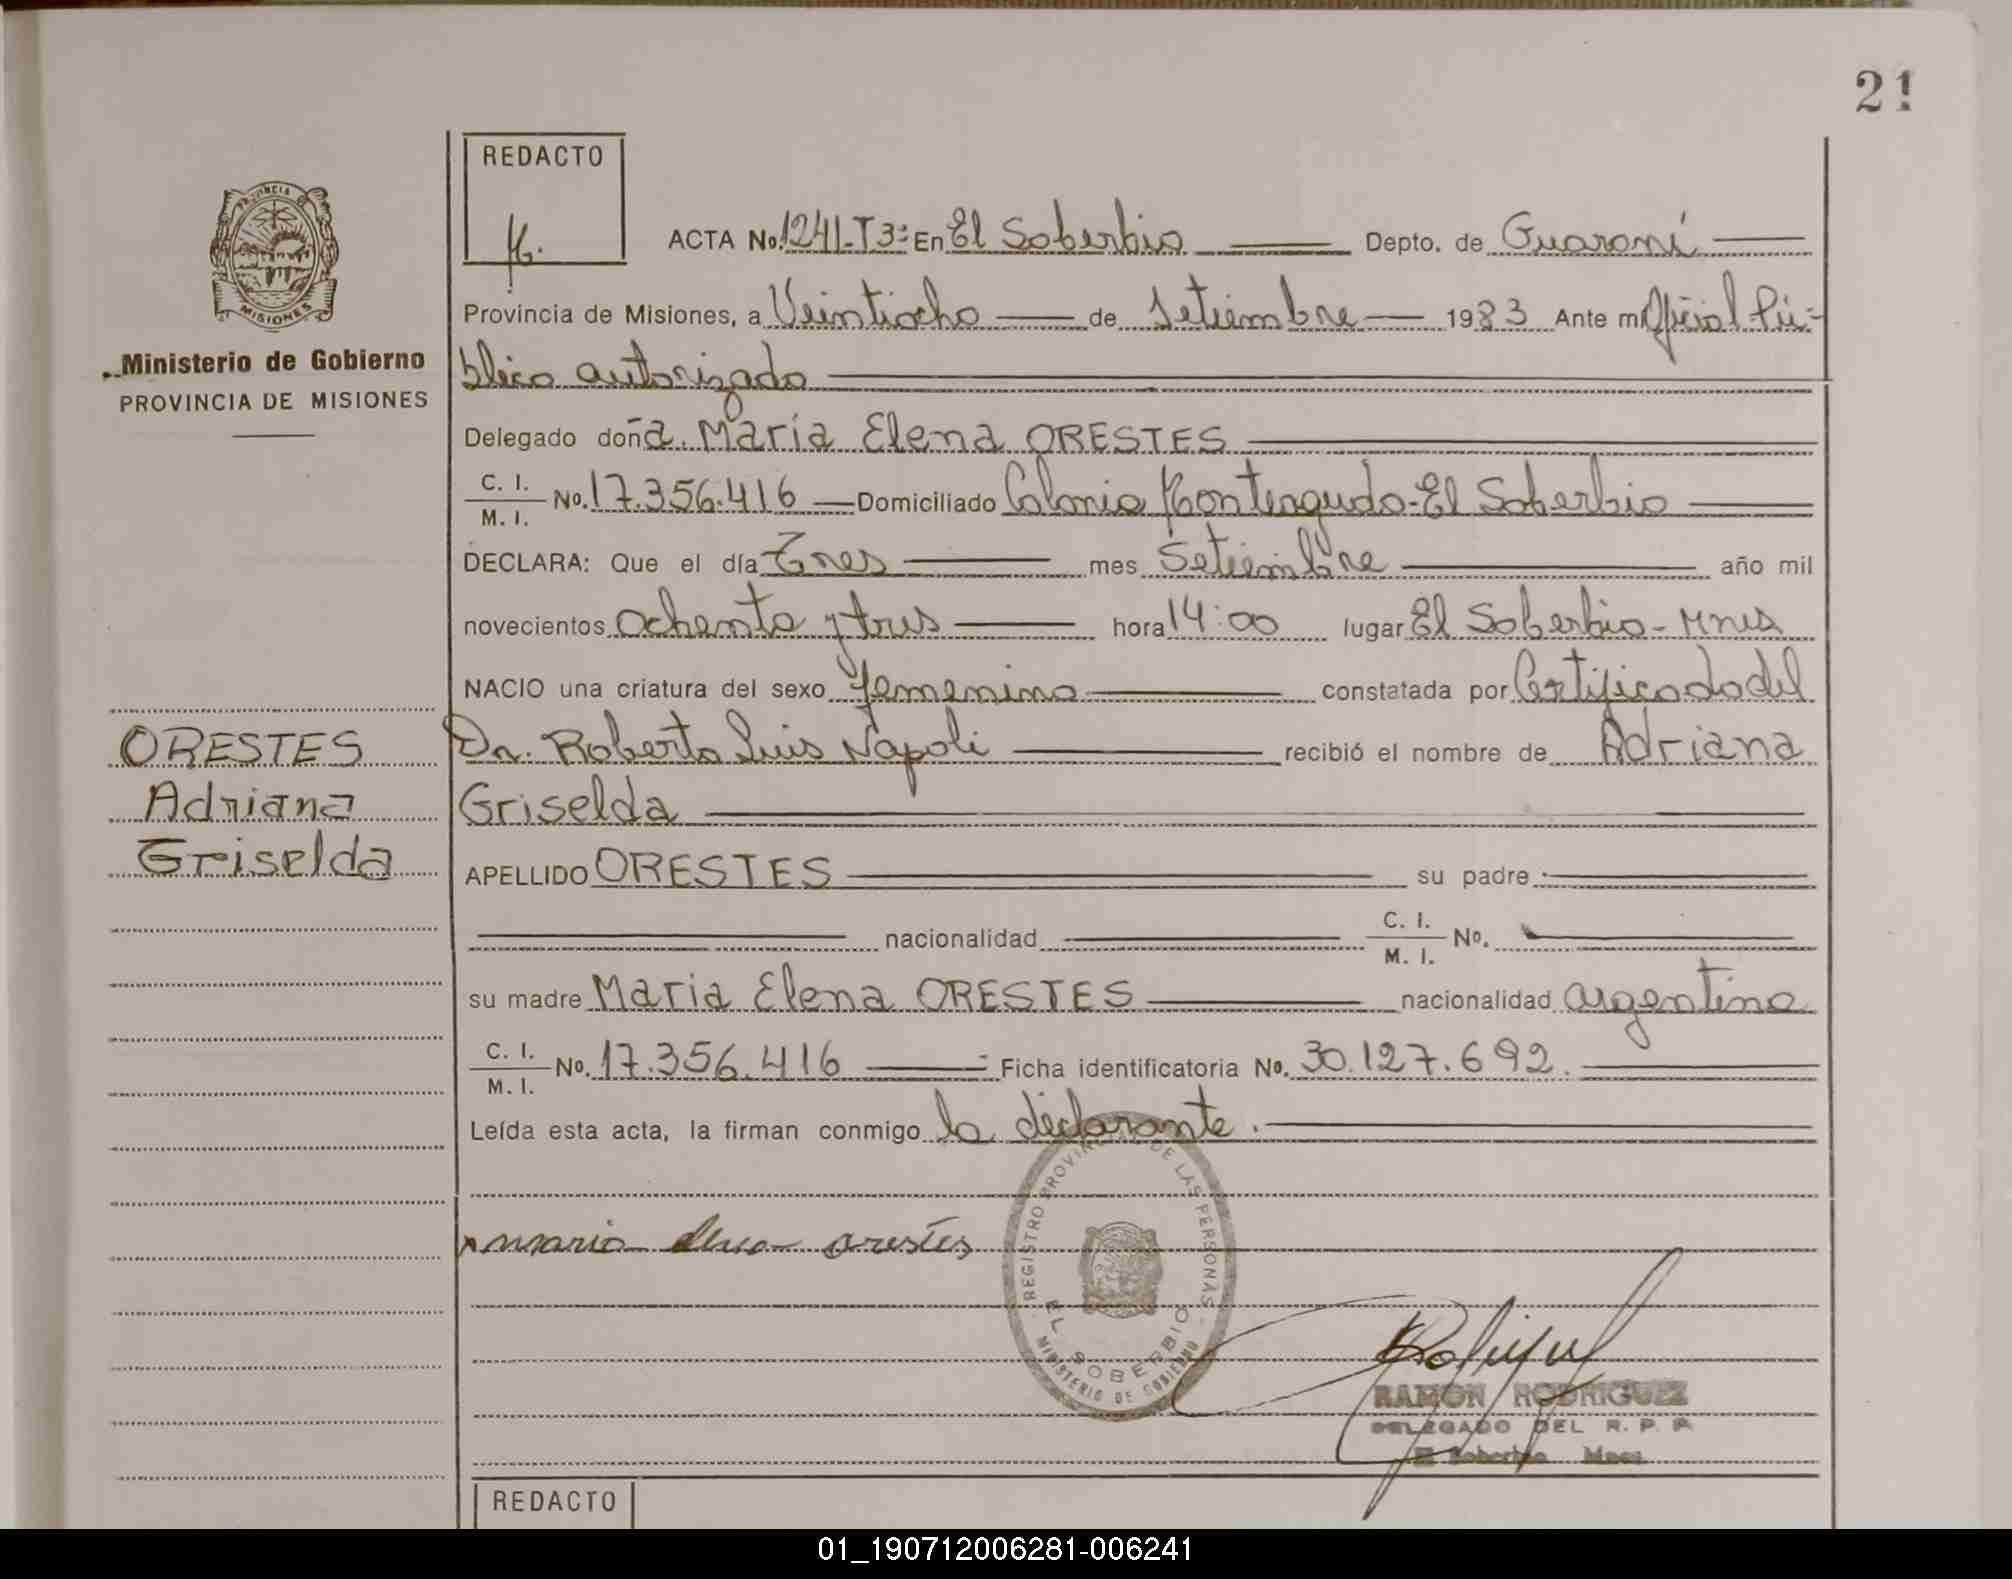 21
REDACTO
ACTA No. 1241-T3º En El Soberbio Depto. de Guaraní
PROVINCIA DE
MISIONES
Provincia de Misiones, a Veintiocho de Setiembre 1983 Ante mi Oficial Pú-
Ministerio de Gobierno
PROVINCIA DE MISIONES
blico autorizado
Delegado doña. Maria Elena ORESTES
C. I.
M. I. No. 17.356.416 Domiciliado Colonia Monteagudo-El Soberbio
DECLARA: Que el día Tres mes Setiembre año mil
novecientos ochenta y tres hora 14:00 lugar El Soberbio-Mnes
NACIO una criatura del sexo femenino constatada por Certificado del
ORESTES
Adriana
Griselda
Dr. Roberto Luis Napoli recibió el nombre de Adriana
Griselda
APELLIDO ORESTES su padre
nacionalidad C. I.
M. I. No.
su madre Maria Elena ORESTES nacionalidad argentina
C. I.
M. I. No. 17.356.416 Ficha identificatoria No. 30.127.692.
Leída esta acta, la firman conmigo la declarante.
REGISTRO PROVINCIAL DE LAS PERSONAS
EL SOBERBIO
MINISTERIO DE GOBIERNO
maria elena orestes
RAMON RODRIGUEZ
DELEGADO DEL R. P. P.
El Soberbio Mnes
REDACTO
01_190712006281-006241